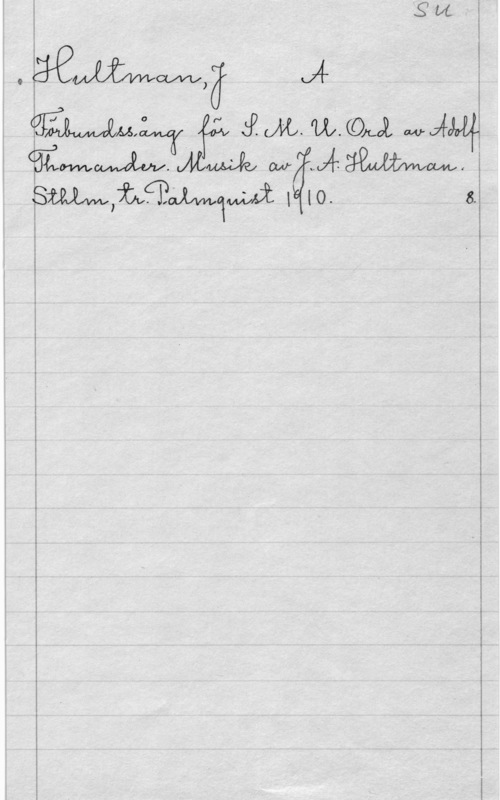 SU
Hultman, J A
Förbundssång för S. M. U. Ord av Adolf
Thomander. Musik av J. A. Hultman.
Sthlm, tr. Palmquist 1910. 8.